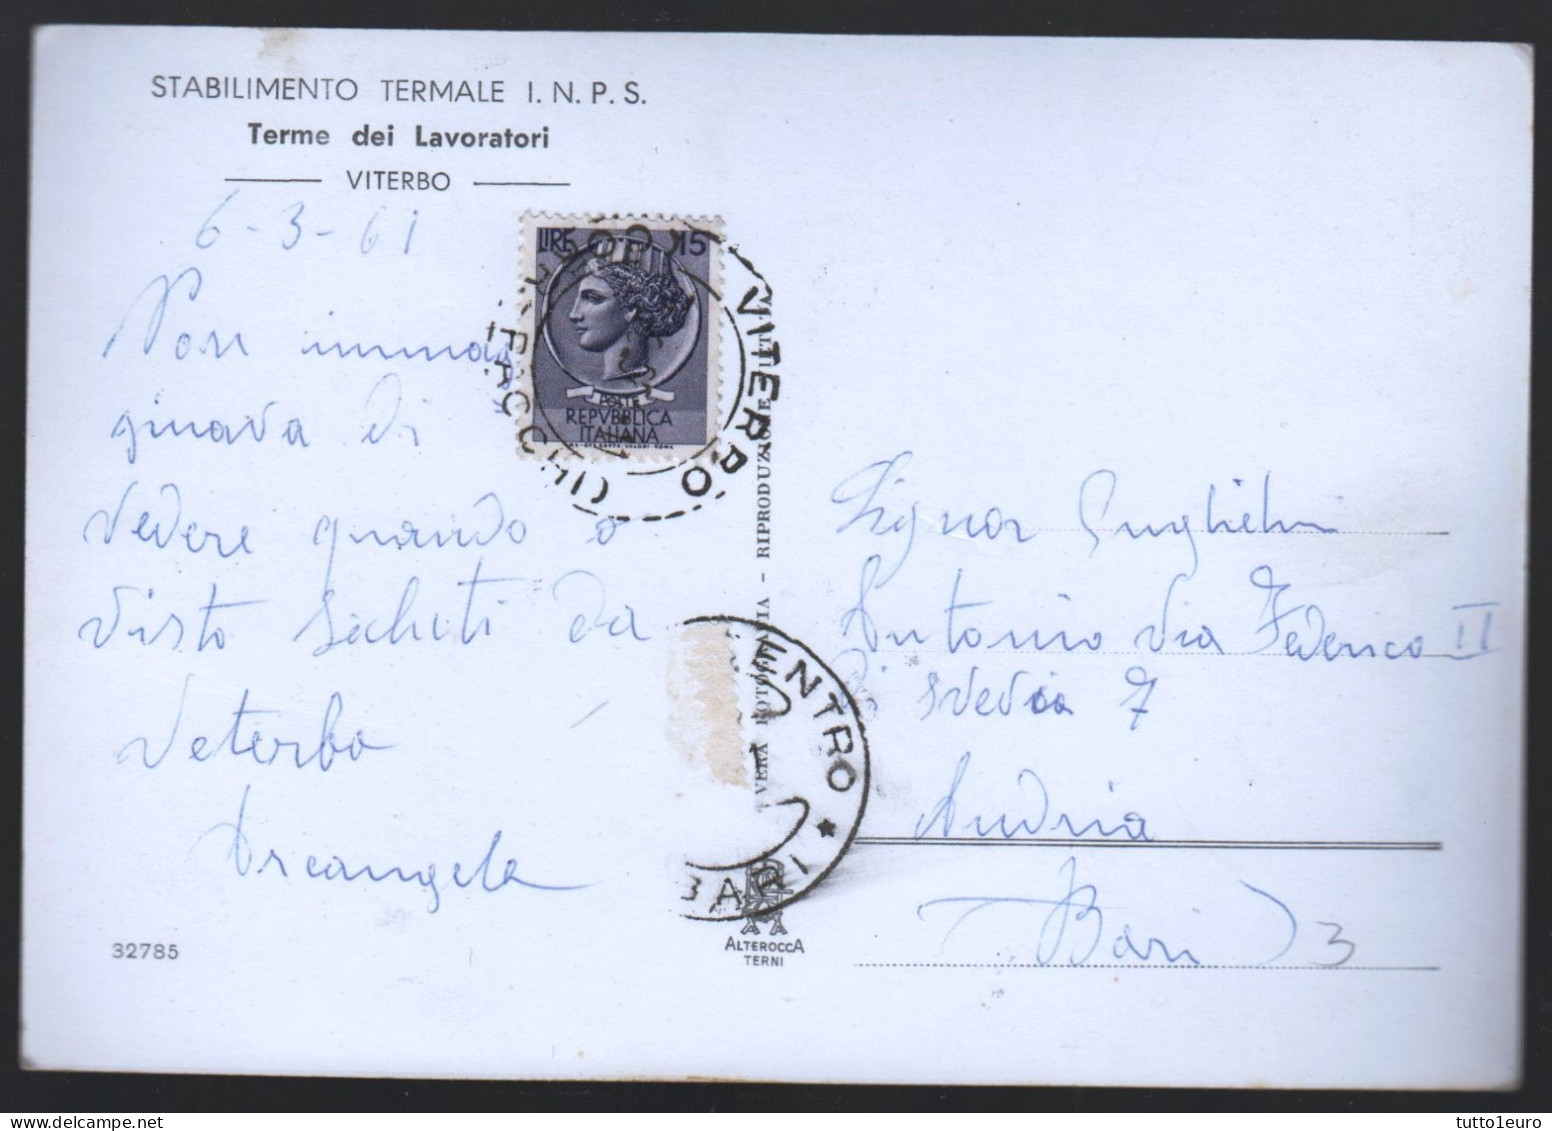 STABILIMENTO TERMALE I. N. P. S.
Terme dei Lavoratori
VITERBO
6-3-61
Non imma
ginava di
vedere quando o
visto saluti da
Veterbo
Arcangela
32785
LIRE 15
POSTE
REPVBBLICA
ITALIANA
VITERBO
VERA FOTOGRAFIA - RIPRODUZIONE
CENTRO
BARI
ALTEROCCA
TERNI
Signor Guglielmi
Antonio Via Federico II
di Svevia 7
Andria
(Bari)
3
tutto1euro